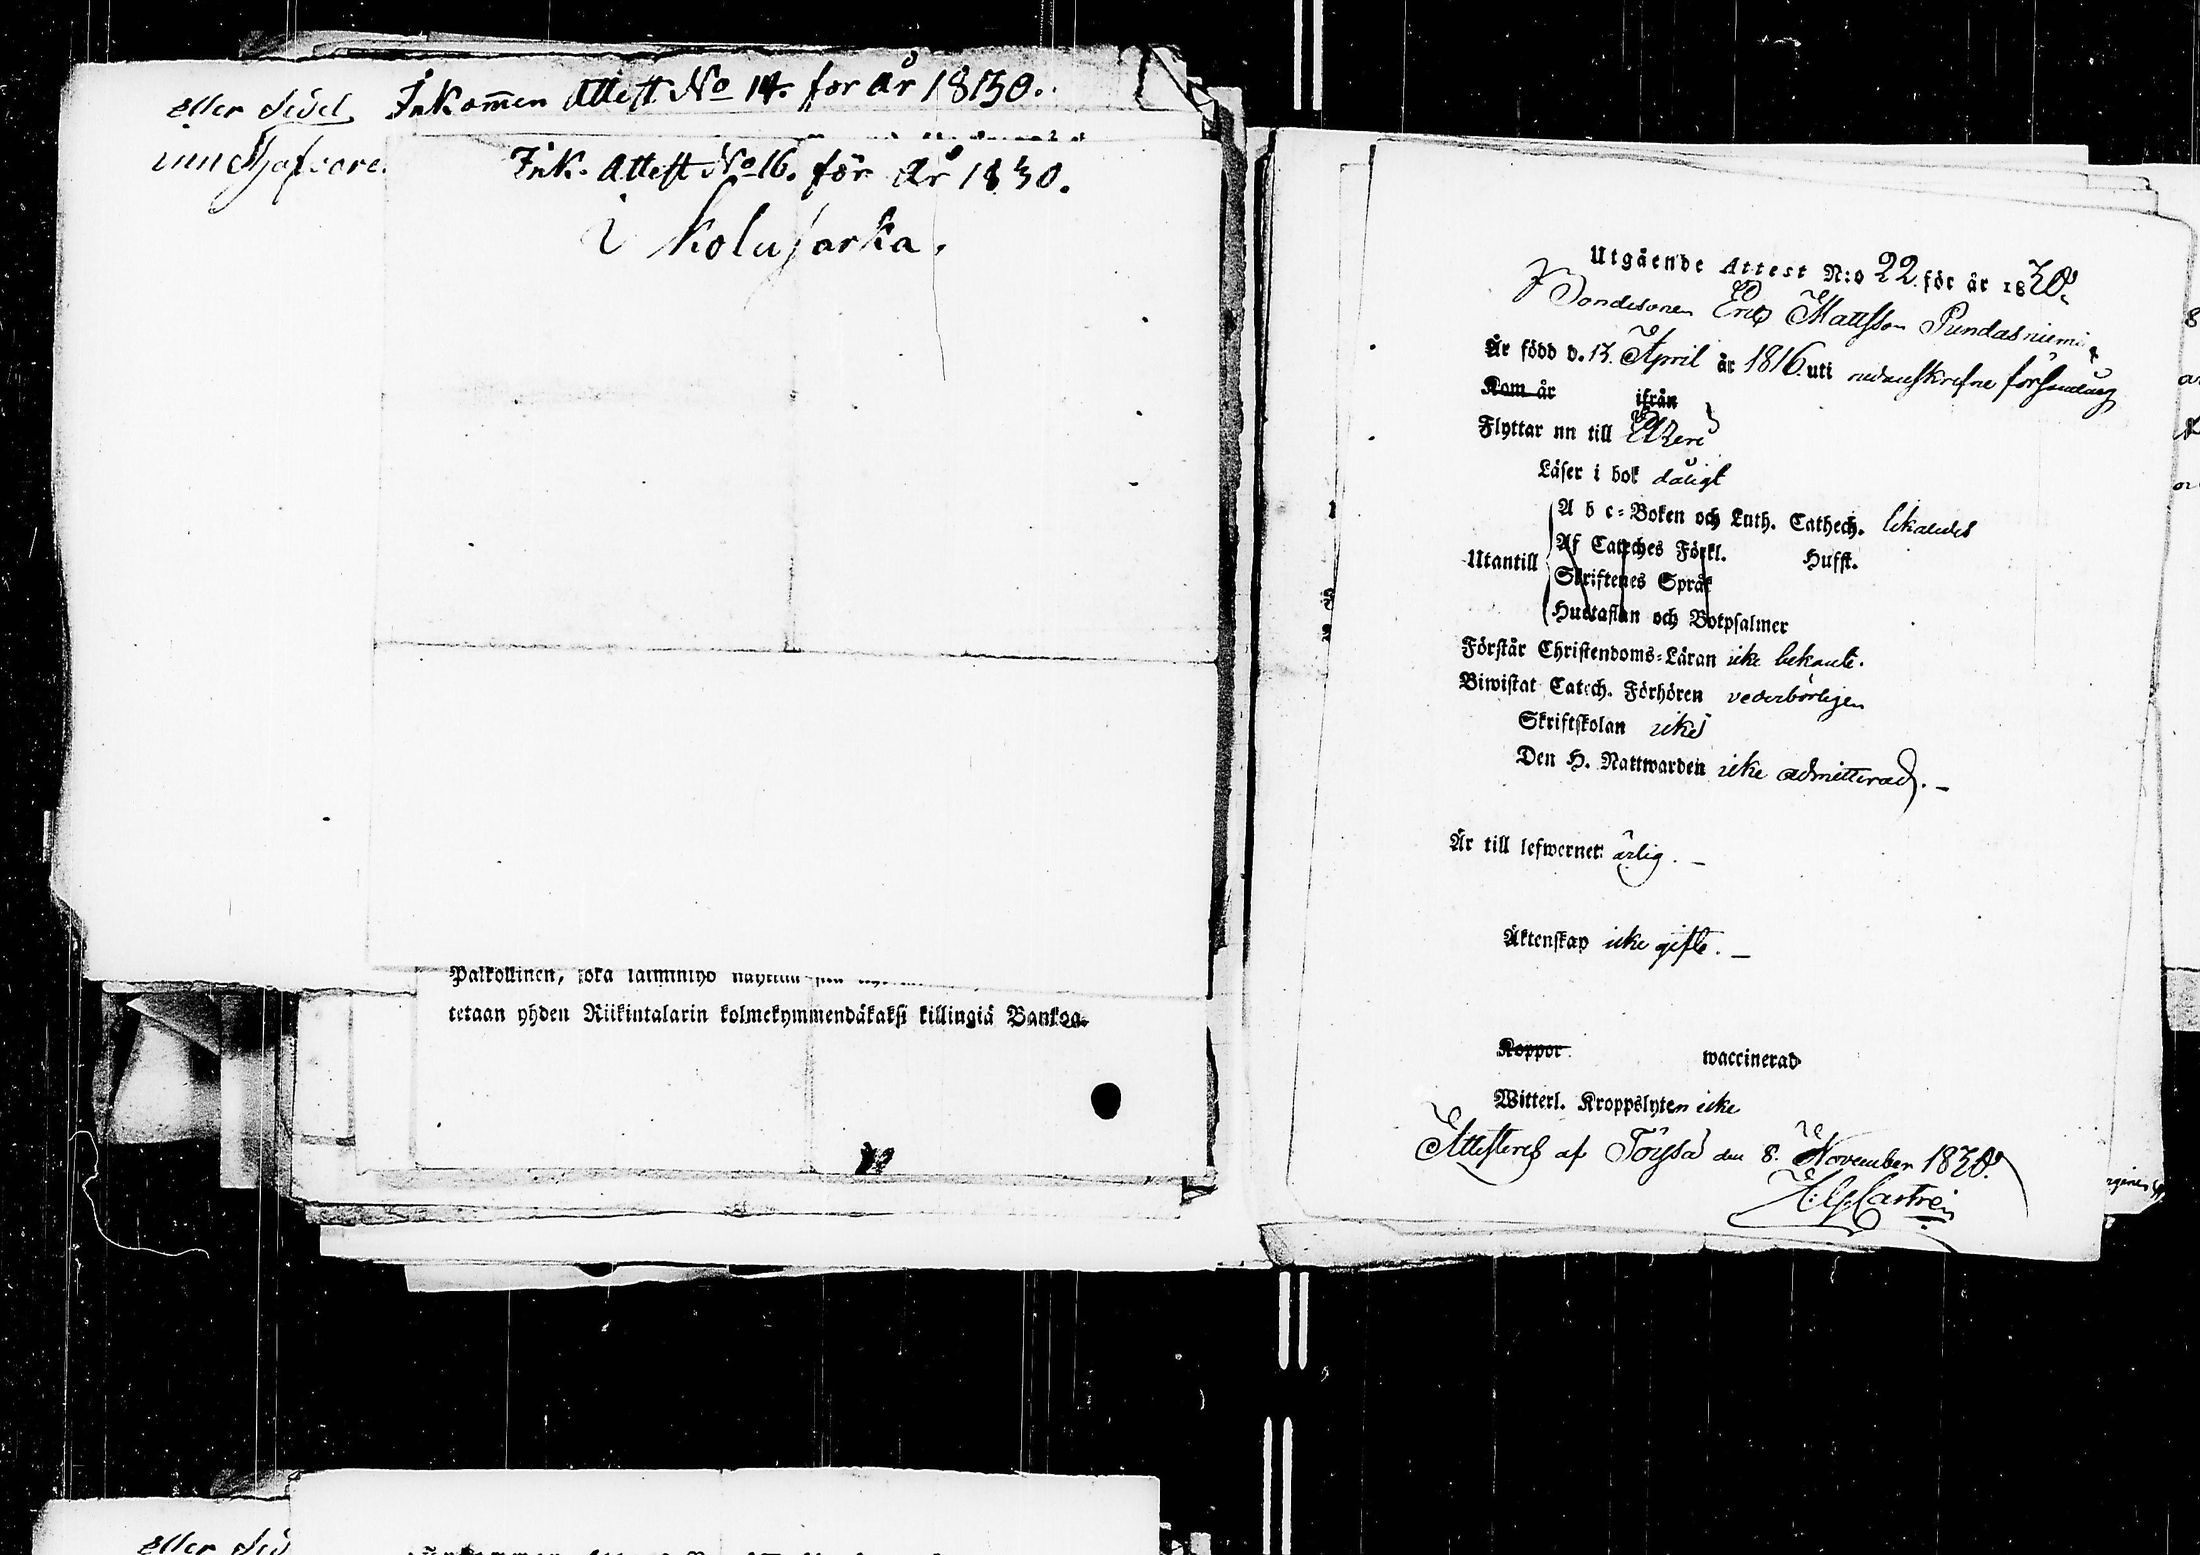 eller Sedel Inkommen Attest No 14. för år 1830.
innehafvare.
Ink. Attest No 16. för år 1830.
i Kolujarka.
Palkollinen, joka
tetaan yhden Riikintalarin kolmekymmendäkaksi killingiä Bankoa.
Utgående Attest N:o 22 för år 1830.
Bondesonen Eric Mattsson Pundasniemi
Är född d. 13. April år 1816. uti nedanskrefne församling
Kom år ifrån
Flyttar nu till Etzeri
Läser i bok dåligt
A b c-Boken och Luth. Cathech. likaledes
Utantill
Af Cateches Förkl. Hufst.
Skriftenes Språk
Hustaflan och Botpsalmer
Förstår Christendoms-Läran icke bekante.
Biwistat Catech. Förhören vederbörligen
Skriftskolan icke
Den H. Nattwarden icke admitterad. —
Är till lefwernet ärlig. —
Äktenskap icke gifte. —
Koppor waccinerad
Witterl. Kroppslyten icke
Attesteras af Töysä den 8. November 1830.
Castrén
eller Sed